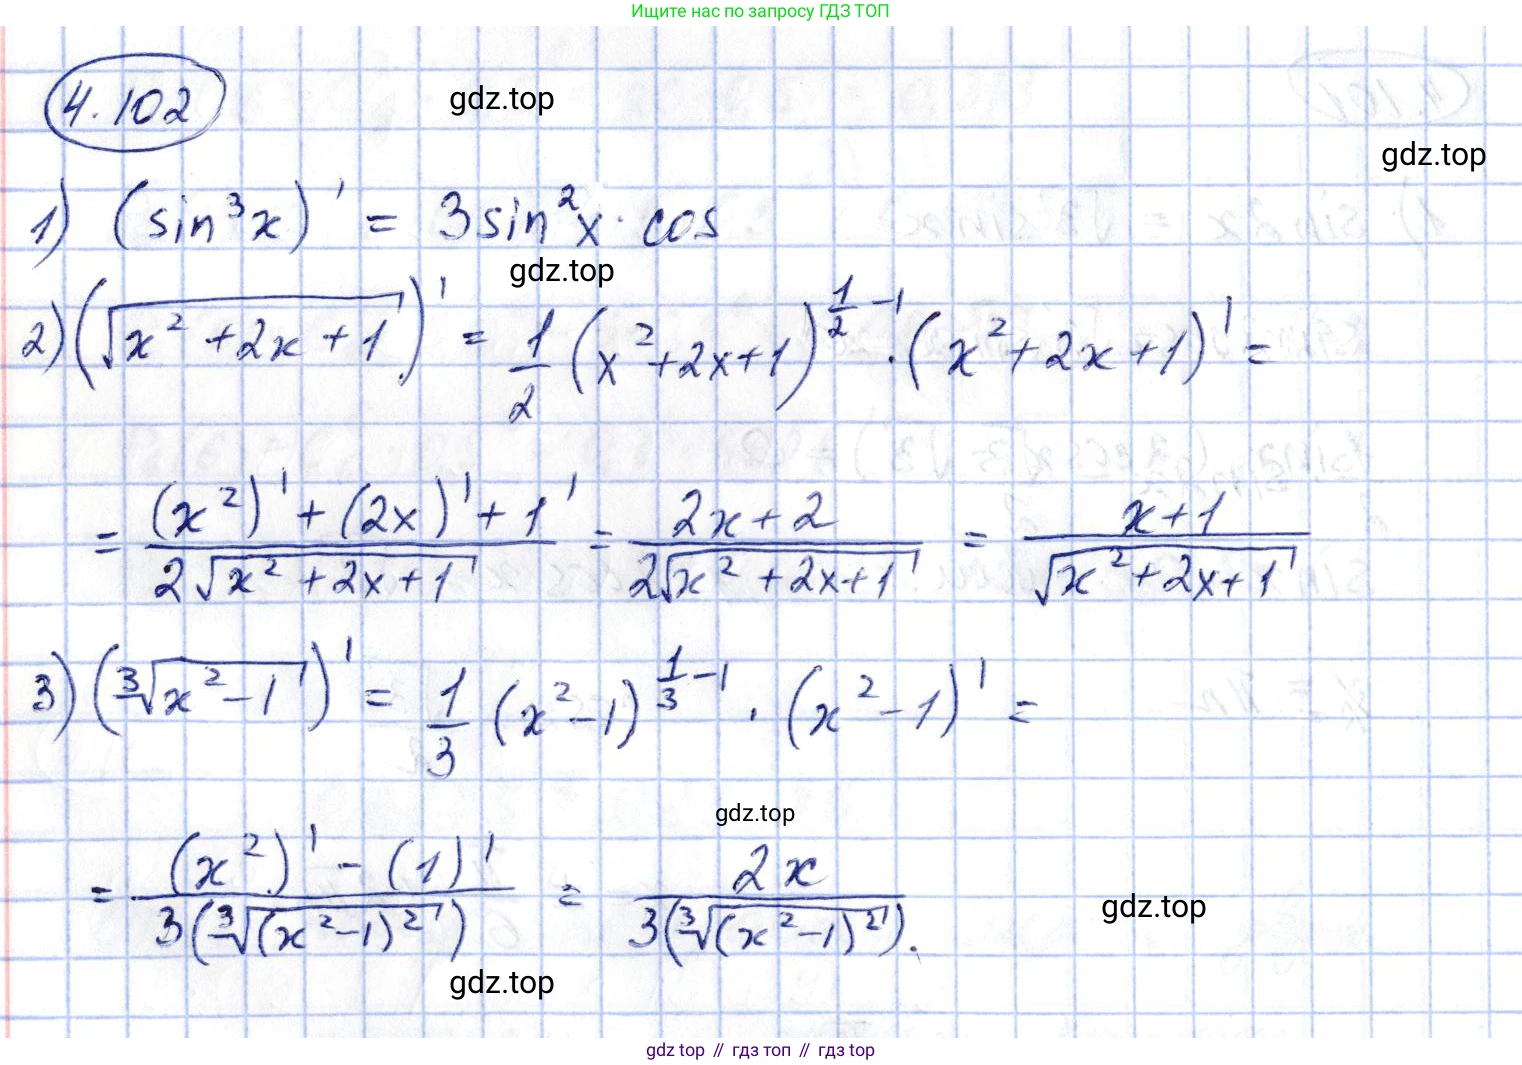 Ищите нас по запросу ГДЗ ТОП
4.102
gdz.top
gdz.top
1) (sin³x)' = 3sin²x · cos
gdz.top
2) (√(x² + 2x + 1))' = 1/2 (x² + 2x + 1)^(1/2 − 1) · (x² + 2x + 1)' =
= ((x²)' + (2x)' + 1')/(2√(x² + 2x + 1)) = (2x + 2)/(2√(x² + 2x + 1)) = (x + 1)/√(x² + 2x + 1)
3) (∛(x² − 1))' = 1/3 (x² − 1)^(1/3 − 1) · (x² − 1)' =
gdz.top
= ((x²)' − (1)')/(3(∛((x² − 1)²))) = 2x/(3(∛((x² − 1)²))).
gdz.top
gdz.top
gdz top // гдз топ // гдз top